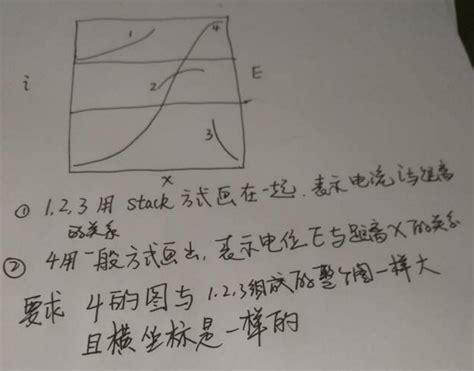 1
4
i
2
E
3
x
① 1,2,3 用 stack 方式画在一起, 表示电流 i 与距离
的关系
② 4用一般方式画出, 表示电位 E 与距离 X 的关系
要求 4 的图与 1.2.3组成的整个图一样大
且横坐标是一样的